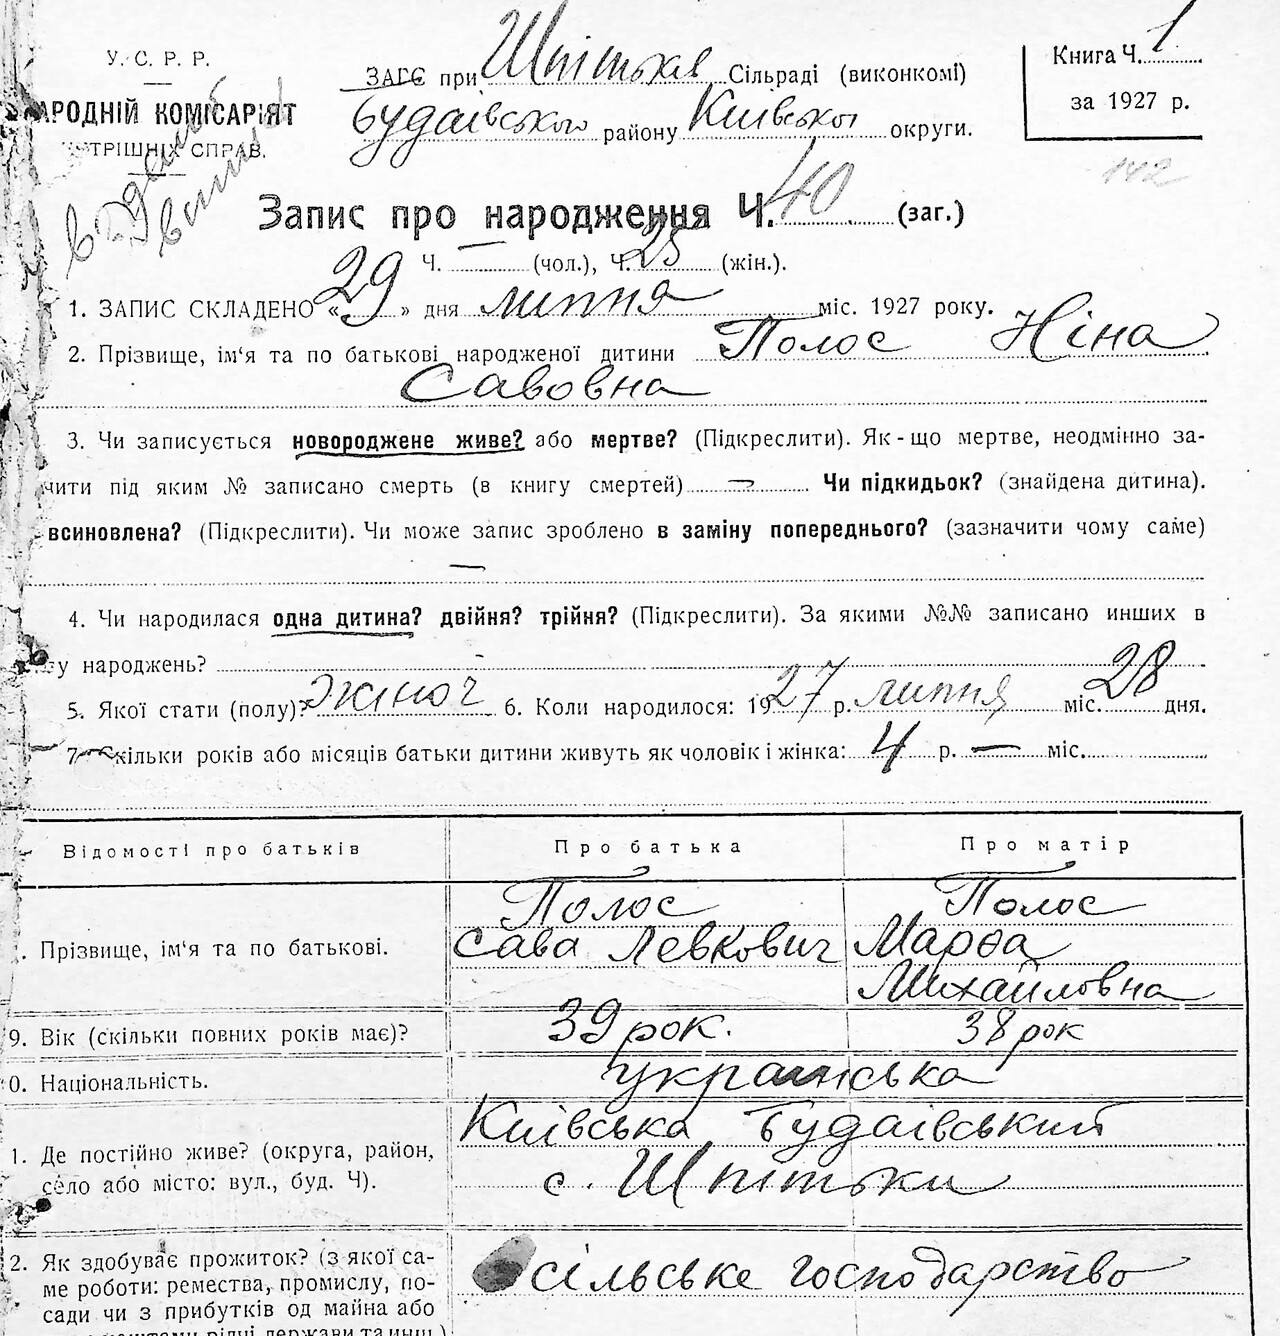 У. С. Р. Р.
АРОДНІЙ КОМІСАРІЯТ
ТРІШНІХ СПРАВ.
ЗАГС при Шпітькав Сільраді (виконкомі)
Будаівського району Київської округи.
Книга Ч. 1
за 1927 р.
142
Запис про народження Ч. 40 (заг.)
Ч. — (чол.), Ч. 25 (жін.).
1. ЗАПИС СКЛАДЕНО « 29 » дня липня міс. 1927 року.
2. Прізвище, ім'я та по батькові народженої дитини Полос Ніна
Савовна
3. Чи записується новороджене живе? або мертве? (Підкреслити). Як-що мертве, неодмінно за-
чити під яким № записано смерть (в книгу смертей) — Чи підкидьок? (знайдена дитина).
всиновлена? (Підкреслити). Чи може запис зроблено в заміну попереднього? (зазначити чому саме)
—
4. Чи народилася одна дитина? двійня? трійня? (Підкреслити). За якими №№ записано инших в
у народжень? -
5. Якої стати (полу)? жіноч 6. Коли народилося: 1927 р. липня міс. 28 дня.
7. Скільки років або місяців батьки дитини живуть як чоловік і жінка: 4 р. — міс.
Відомості про батьків Про батька Про матір
. Прізвище, ім'я та по батькові. Полос Сава Левкович Полос Марѳа Михайловна
9. Вік (скільки повних років має)? 39 рок. 38 рок
0. Національність. українська
1. Де постійно живе? (округа, район, Київська Будаівський
село або місто: вул., буд. Ч). с. Шпітьки
2. Як здобуває прожиток? (з якої са- сільське господарство
ме роботи: ремества, промислу, по-
сади чи з прибутків од майна або
рідні держави та инш.)